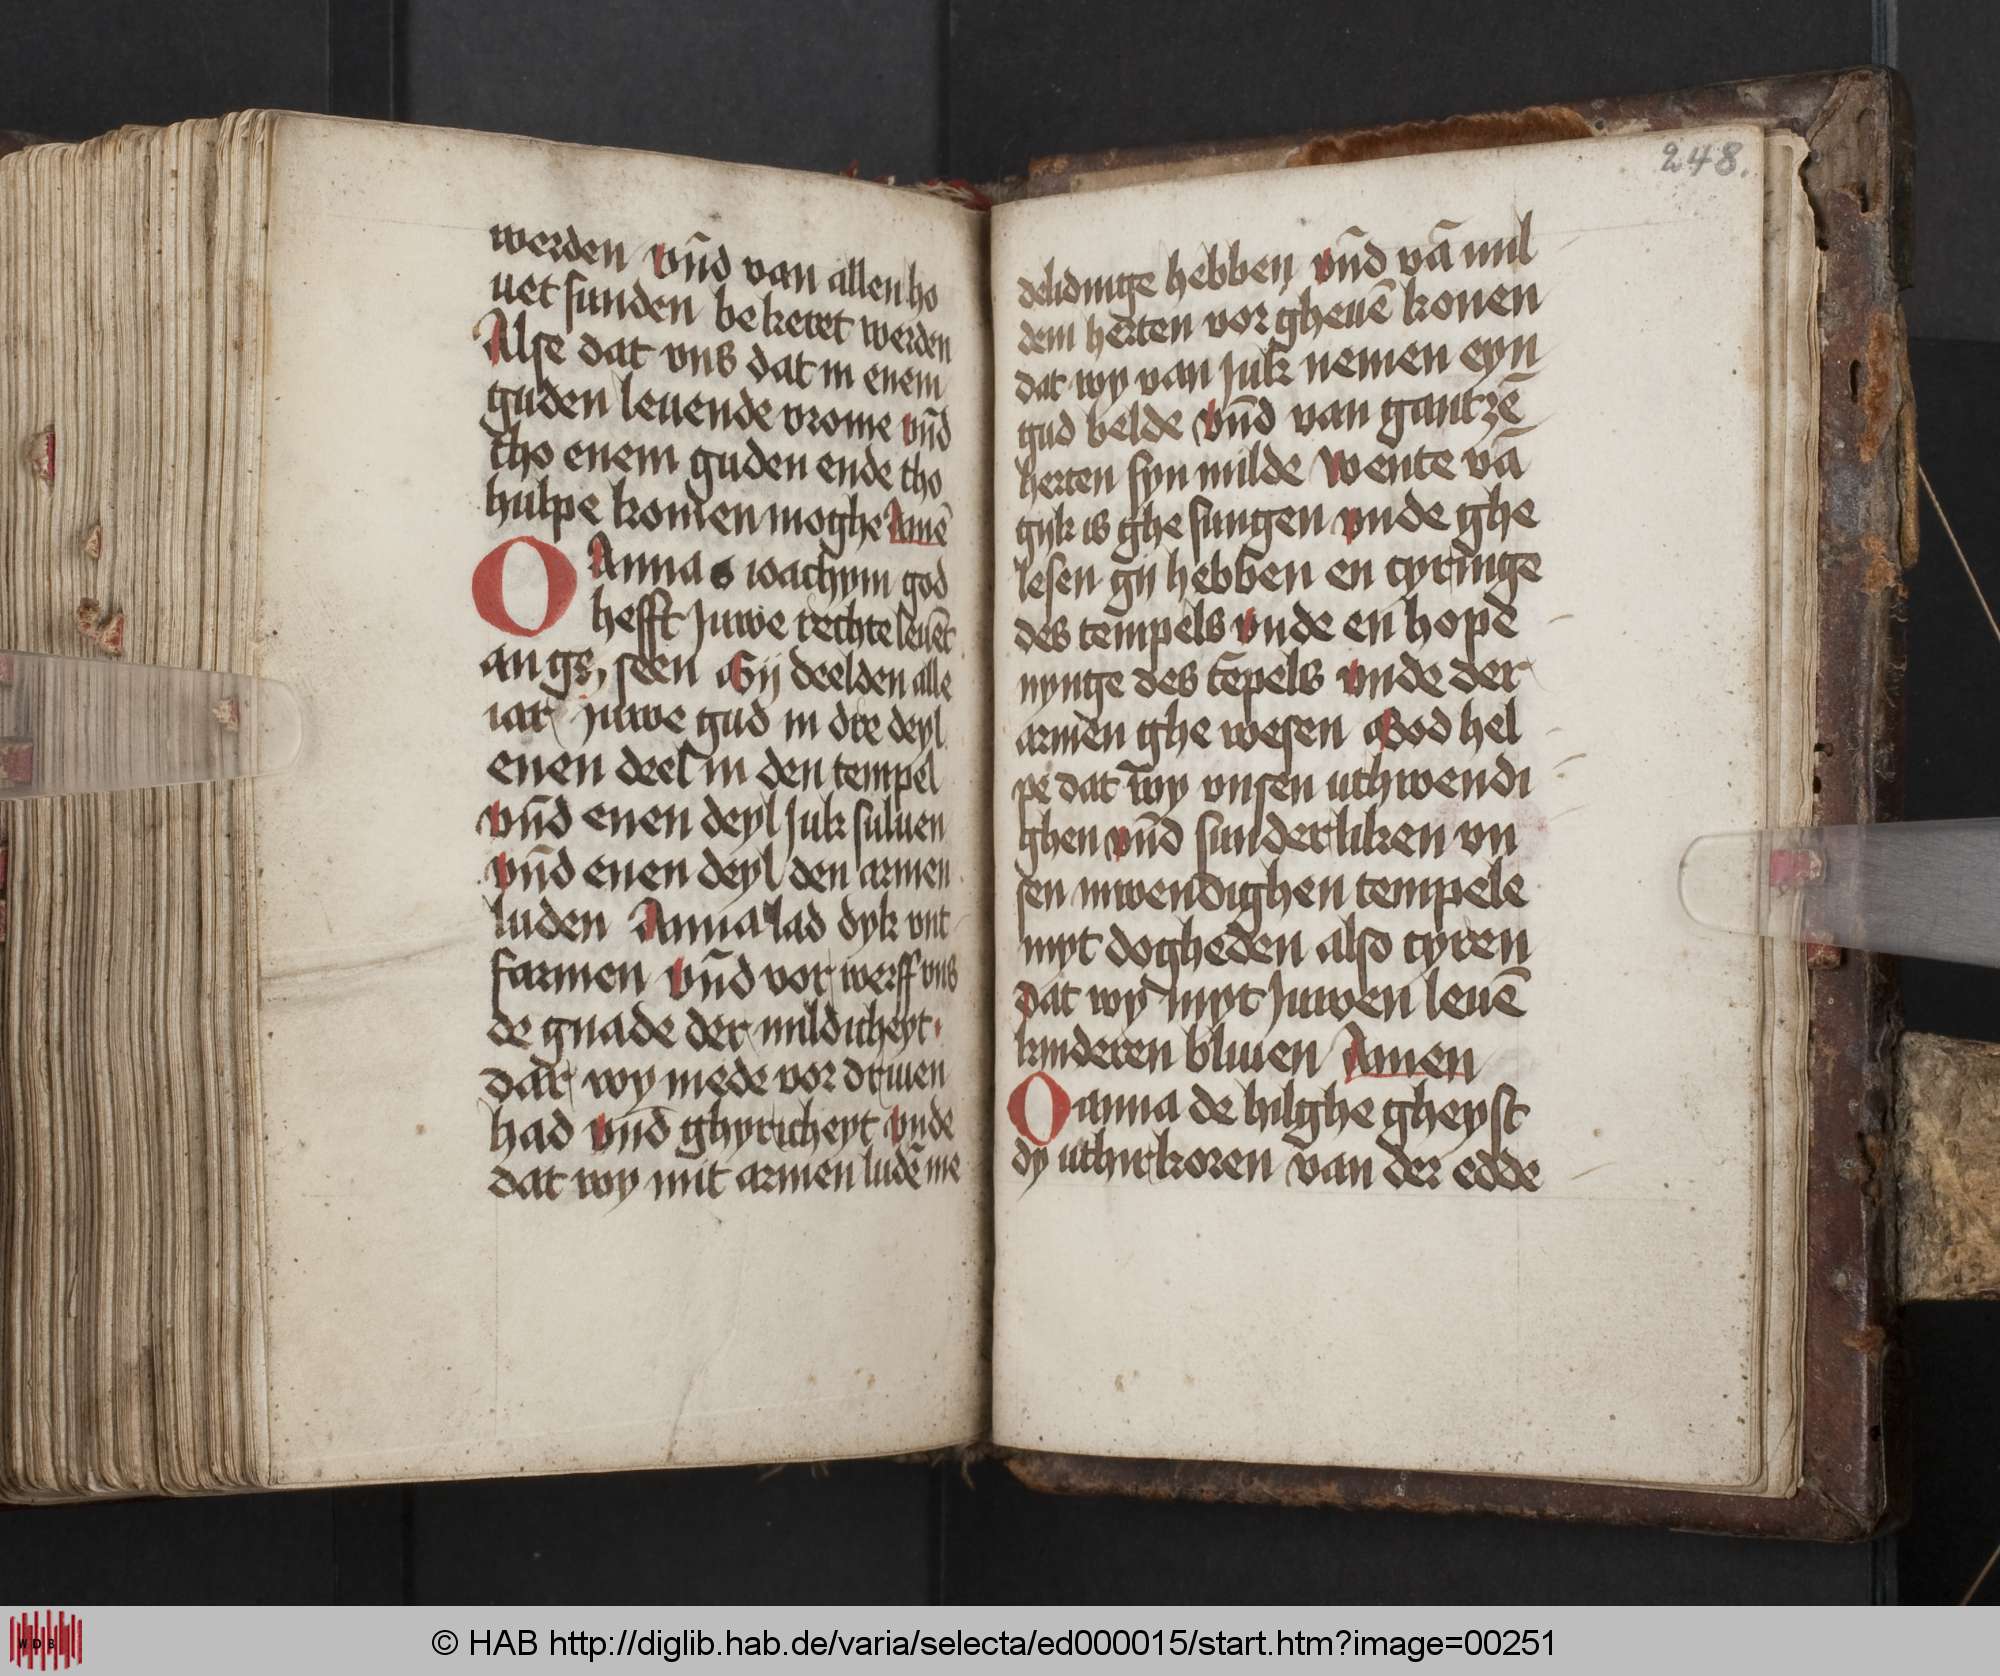 werden vn̄d van allen ho
uet sunden bekeret werden
Alse dat vns dat in enem
guden leuende vrome vn̄d
tho enem guden ende tho
hulpe komen moghe Amē
O Anna ioachym god
hefft juwe rechte leuēt
an seen Gij deelden alle
iar juwe gud in dre deyl
enen deel in den tempel
vn̄d enen deyl juk suluen
vn̄d enen deyl den armen
luden Anna lad dyk vnt
farmen vn̄d vor werff vns
de gnade der mildicheyt
dar wy mede vor driuen
had vn̄d ghyricheyt vnde
dat wy mit armen ludē me
248.
delidinge hebben vn̄d vā mil
dem herten vor gheuē konen
dat wy van juk nemen eyn
gud belde vn̄d van gantzē
herten syn milde Wente vā
gijk is ghe sungen vnde ghe
lesen gij hebben en cyringe
des tempels vnde en hope
nynge des tēpels vnde der
armen ghe wesen God hel
pe dat wy vnsen uthwendi
ghen vn̄d sunderliken vn
sen inwendighen tempele
myt dogheden also cyren
dat wy myt juwen leuē
kinderen bliuen Amen
O anna de hilghe gheyst
dy uthirkoren van der edde
WDB
© HAB http://diglib.hab.de/varia/selecta/ed000015/start.htm?image=00251